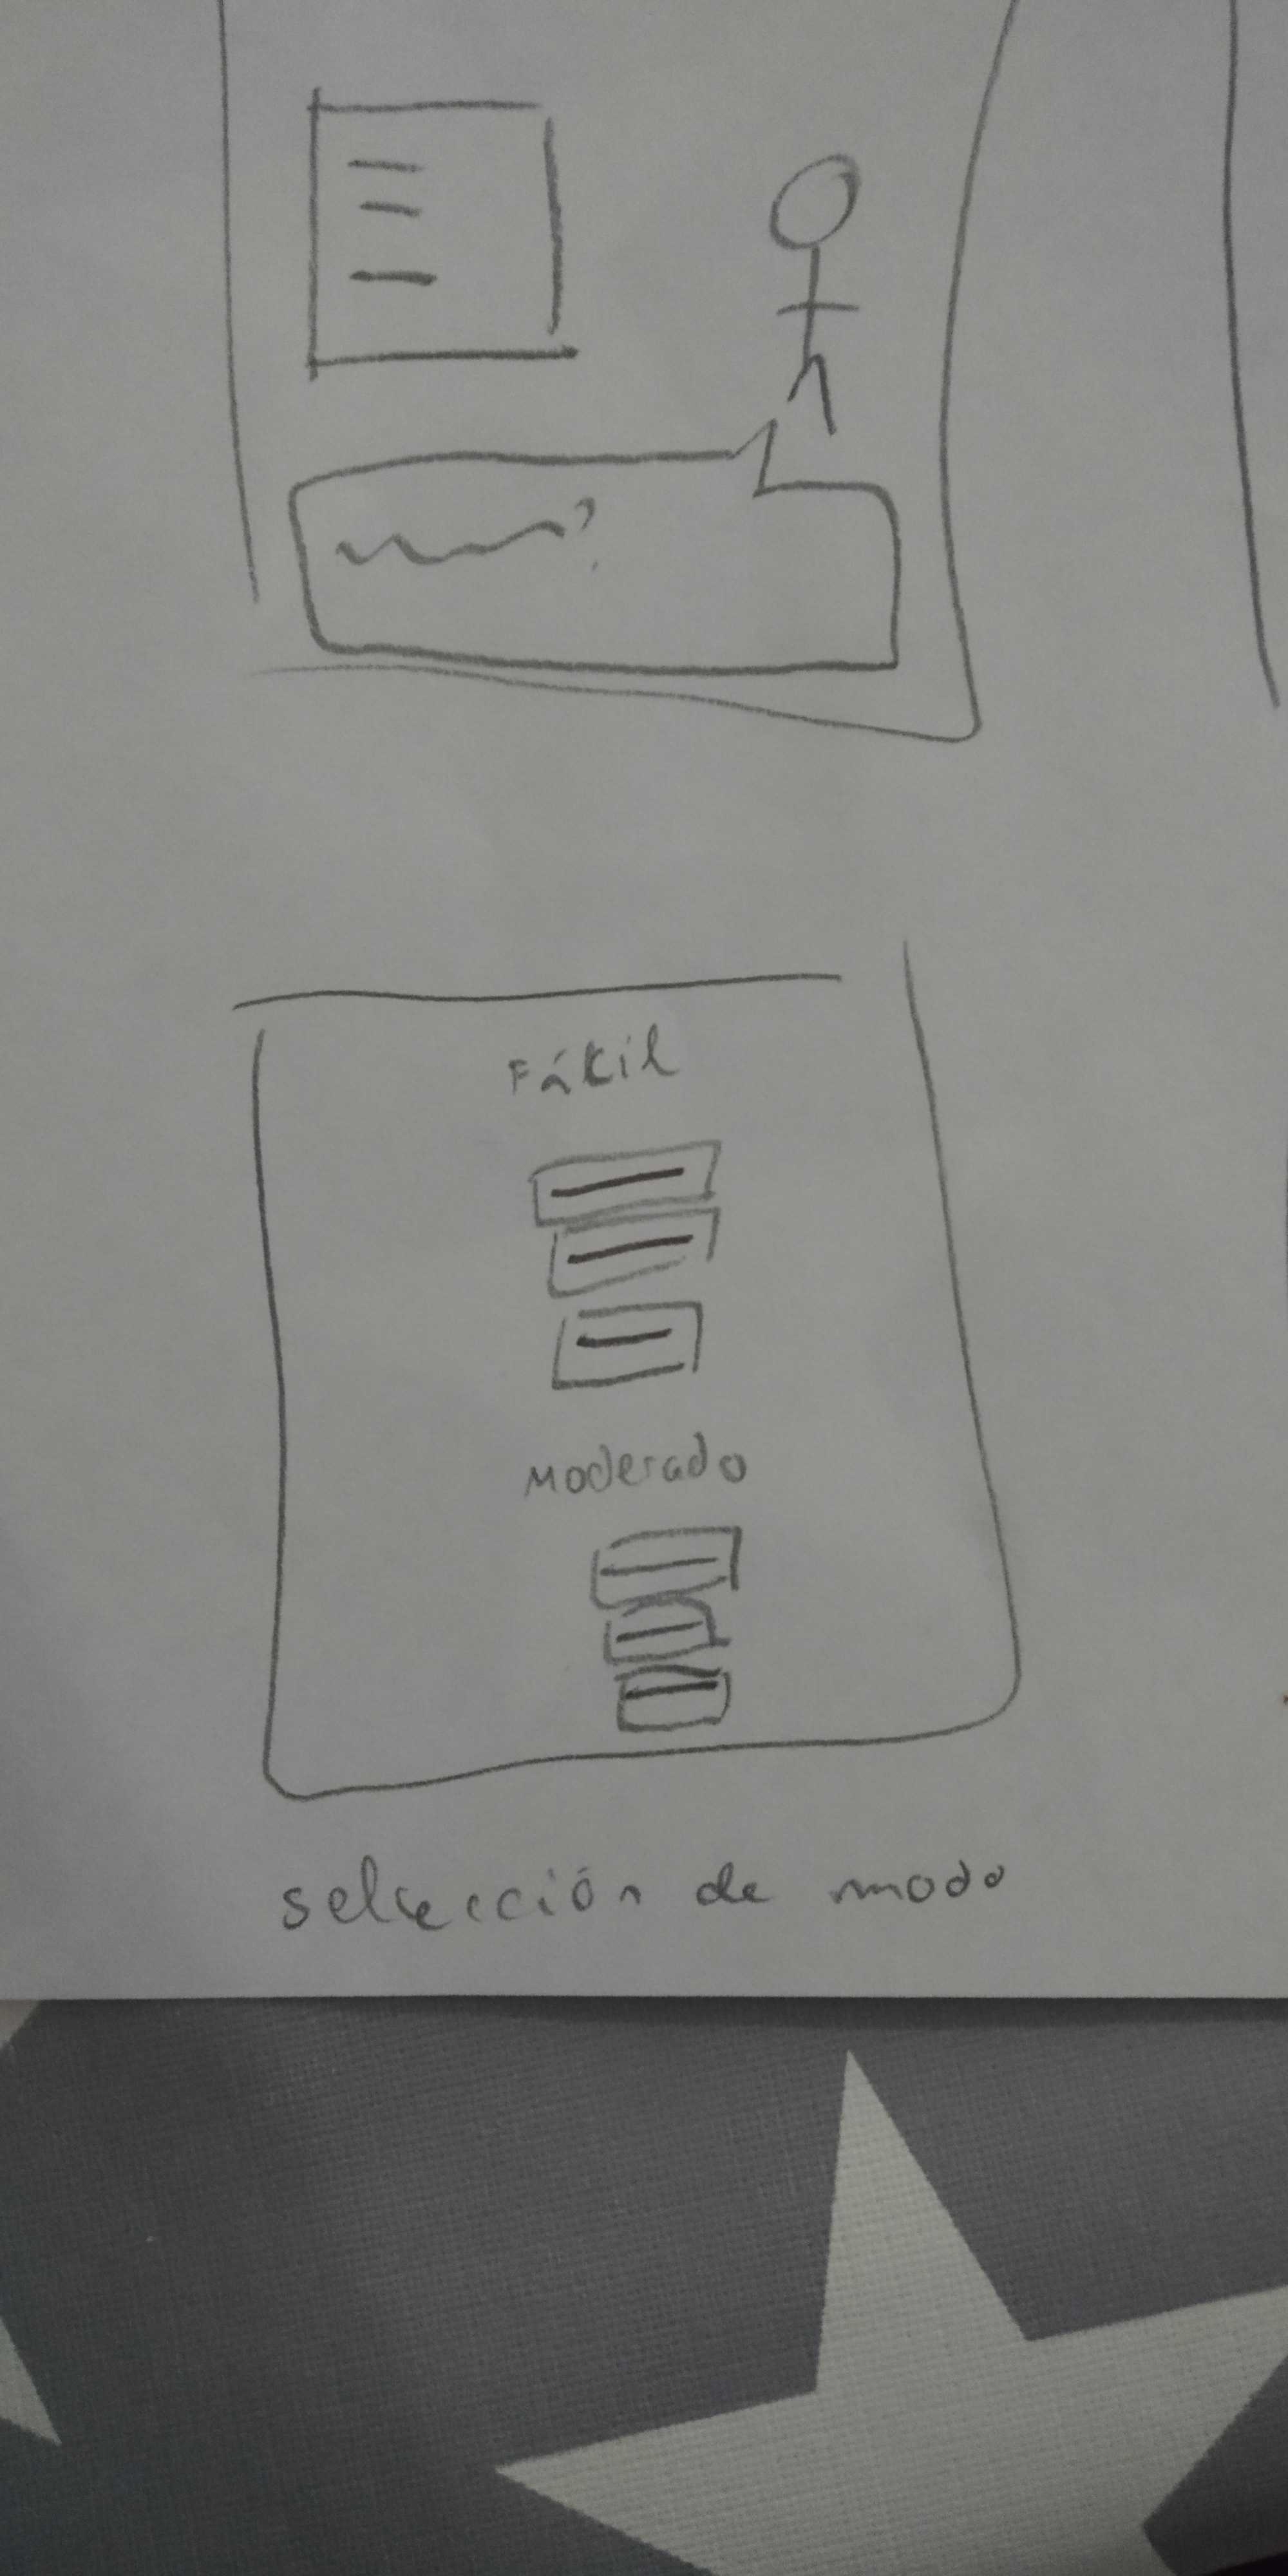 ?
Fácil
Moderado
selección de modo